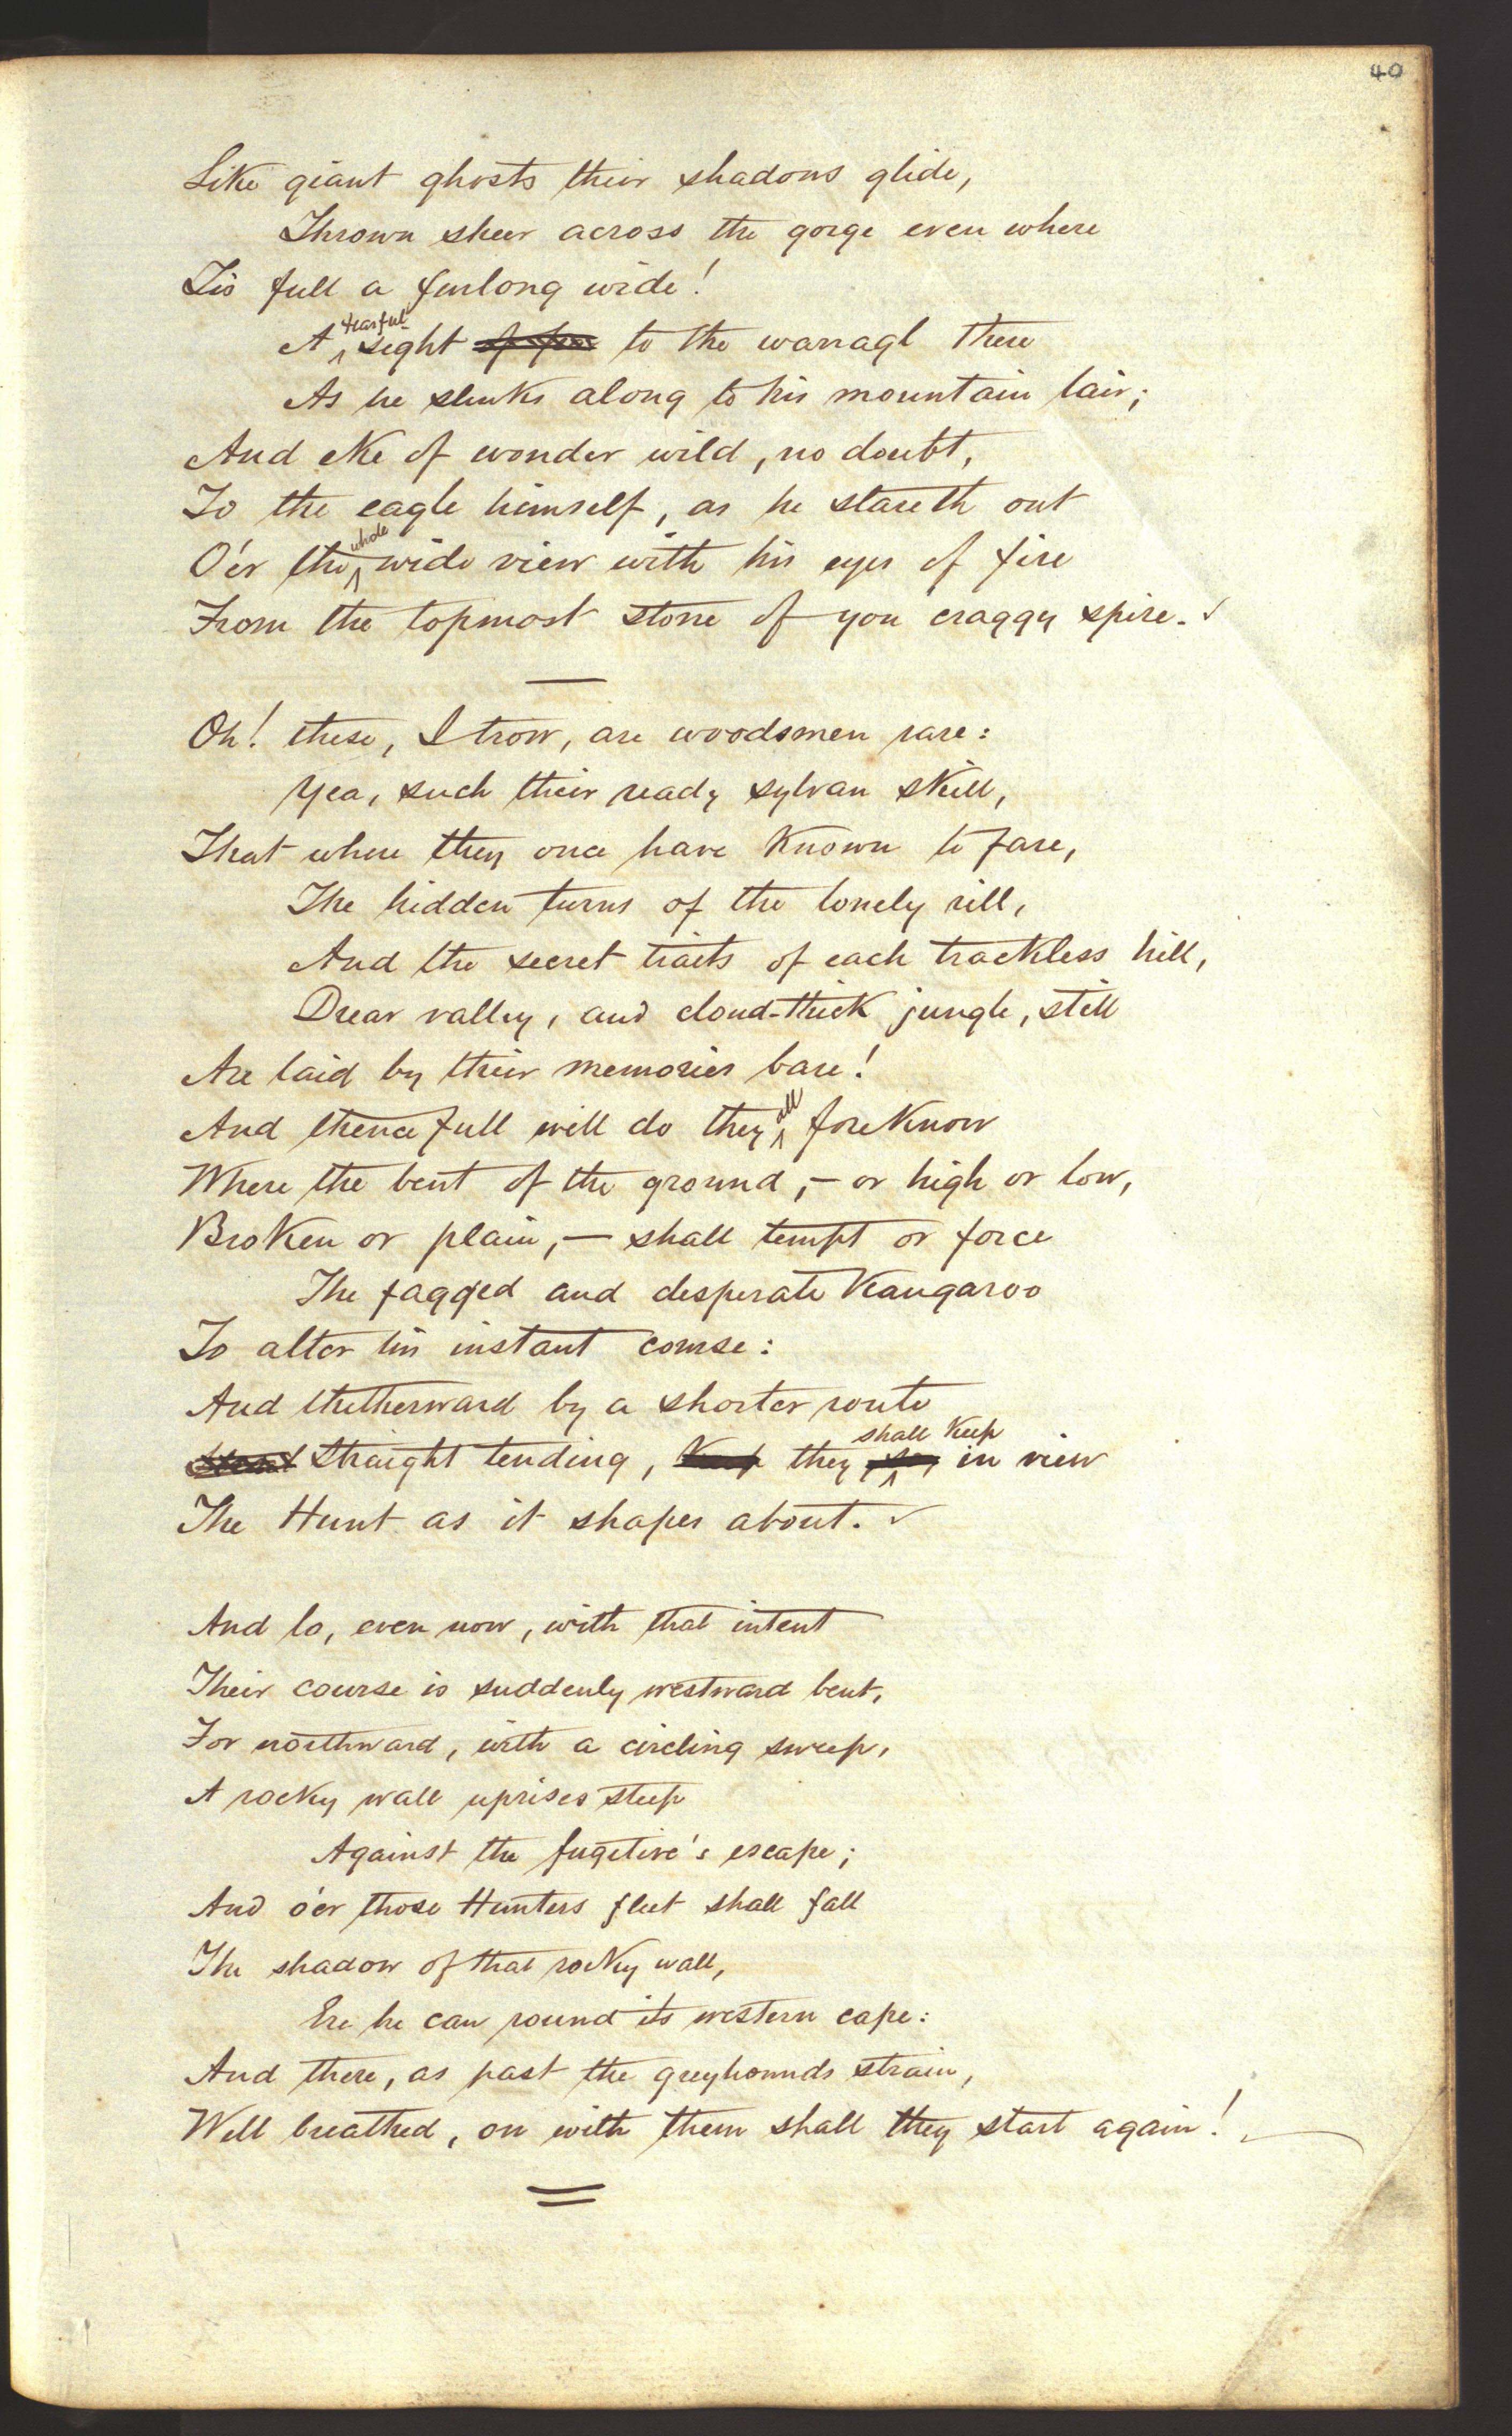 40
Like giant ghosts their shadows glide,
Thrown sheer across the gorge even where
Tis full a furlong wide!
A fearful sight to the warragl there
As he slinks along to his mountain lair;
And eke of wonder wild, no doubt,
To the eagle himself, as he stareth out
O'er the whole wide view with his eyes of fire
From the topmost stone of yon craggy spire.
Oh! these, I trow, are woodsmen rare:
Yea, such their ready sylvan skill,
That where they once have known to fare,
The hidden turns of the lonely rill,
And the secret traits of each trackless hill,
Drear valley, and cloud-thick jungle, still
Are laid by their memories bare!
And thence full well do they all foreknow
Where the bent of the ground,- or high or low,
Broken or plain,— shall tempt or force
The fagged and desperate Kangaroo
To alter his instant course:
And thitherward by a shorter route
Straight tending, they shall keep in view
The Hunt as it shapes about.
And lo, even now, with that intent
Their course is suddenly westward bent,
For northward, with a circling sweep,
A rocky wall uprises steep
Against the fugitive's escape;
And o'er those Hunters fleet shall fall
The shadow of that rocky wall,
Ere he can round its western cape:
And there, as past the greyhounds strain,
Well breathed, on with them shall they start again!